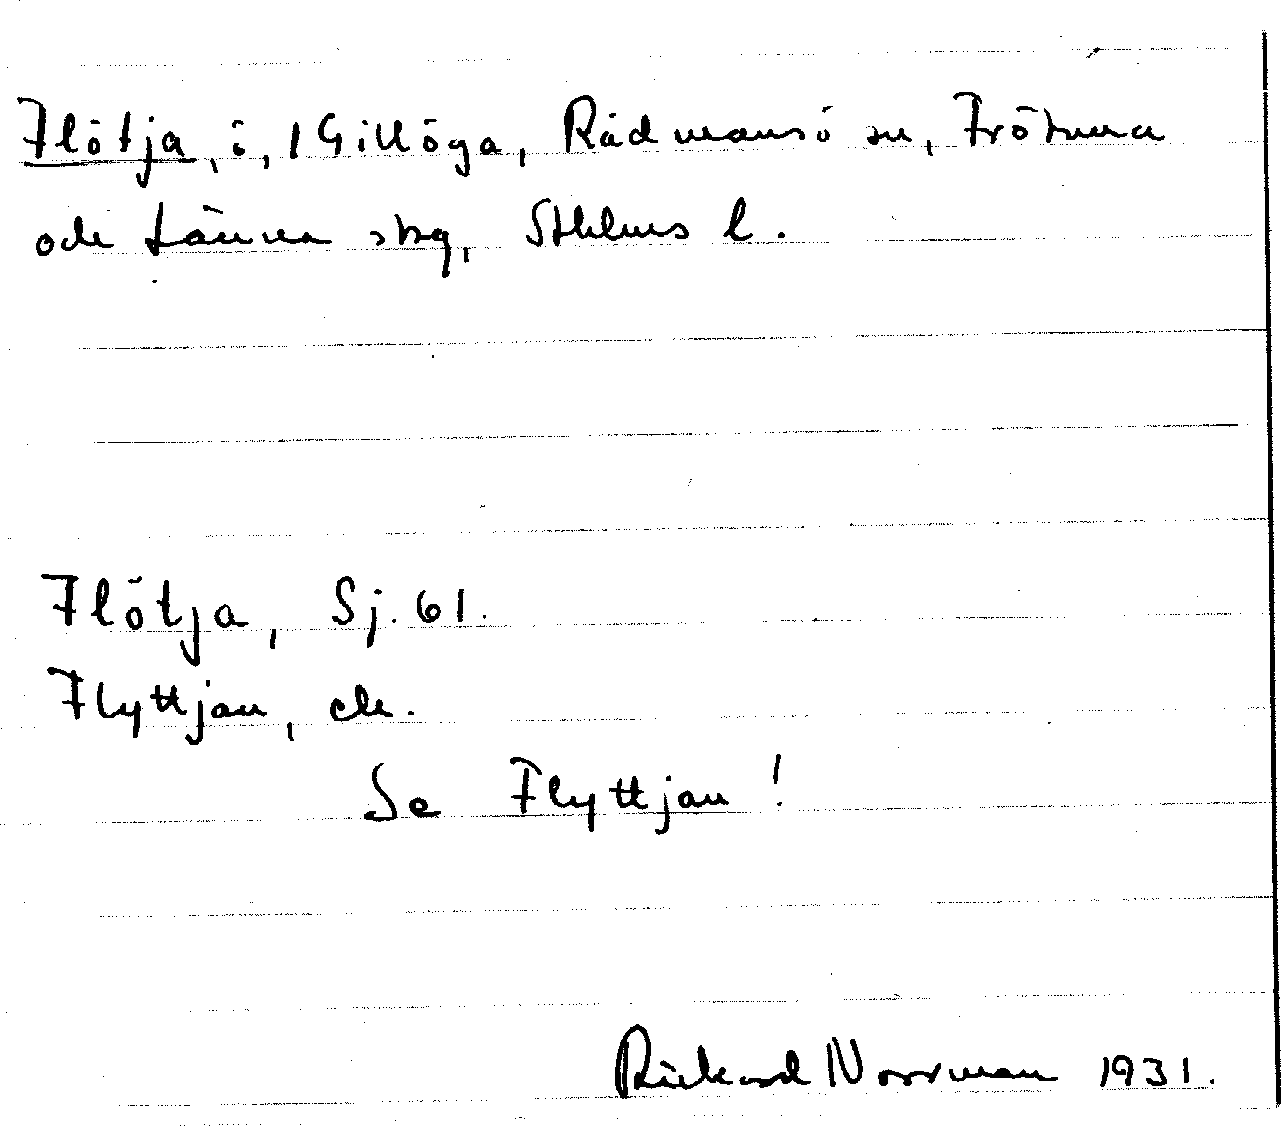 Flötja, ö, i Gillöga, Rådmansö sn, Frötuna
och Länna skg, Sthlms l.
Flötja, Sj. 61.
Flyttjan, ek.
Se Flyttjan!
Rickard Norrman 1931.